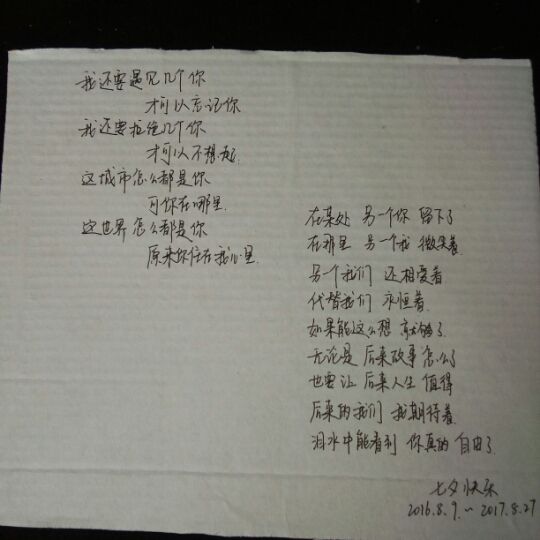 我还要遇见几个你
才可以忘记你
我还要拒绝几个你
才可以不想起.
这城市怎么都是你
可你在哪里.
这世界怎么都是你
原来你住在我心里.
在某处 另一个你 留下了
在那里 另一个我 微笑着
另个我们 还相爱着
代替我们 永恒着.
如果能这么想 就够了.
无论是 后来故事 怎么了
也要让 后来人生 值得
后来的我们 我期待着.
泪水中能看到 你真的 自由了.
七夕快乐
2016.8.9.~2017.8.27